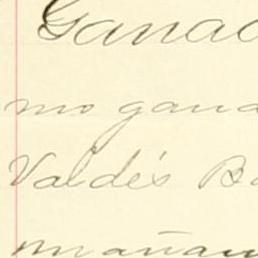 Ganad
mo gana
Valdés Ba
mañan